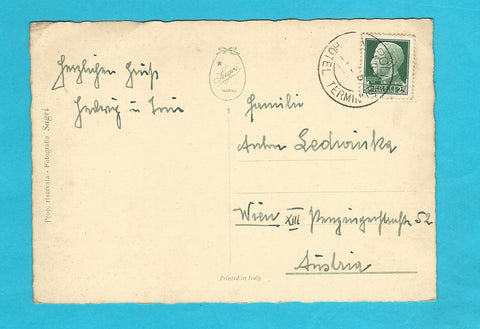 Herzlichen Gruß
Hedwig u
Prop. riservata - Fotografia Sagri
Sagri
NAPOLI
7
HOTEL TERMIN
Familie
Anton Ledwinka
Wien XIII Penzingerstraße 52
Austria
Printed in Italy